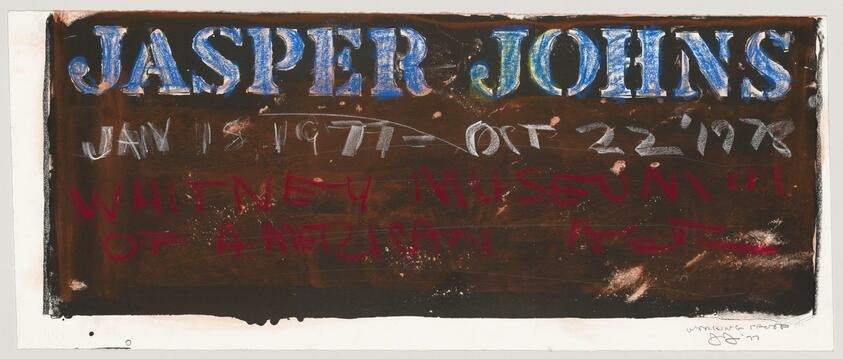 JASPER JOHNS
JAN 18 1977- OCT 22 '1978
WHITNEY MUSEUM
OF AMERICAN ART
WORKING PROOF
JJ '77